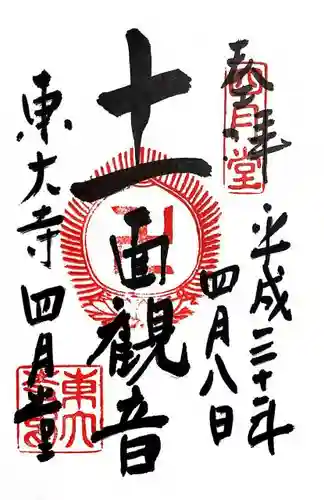 奉拝
四月堂
平成三十一年
四月八日
十一面観音
卍
東大寺 四月堂